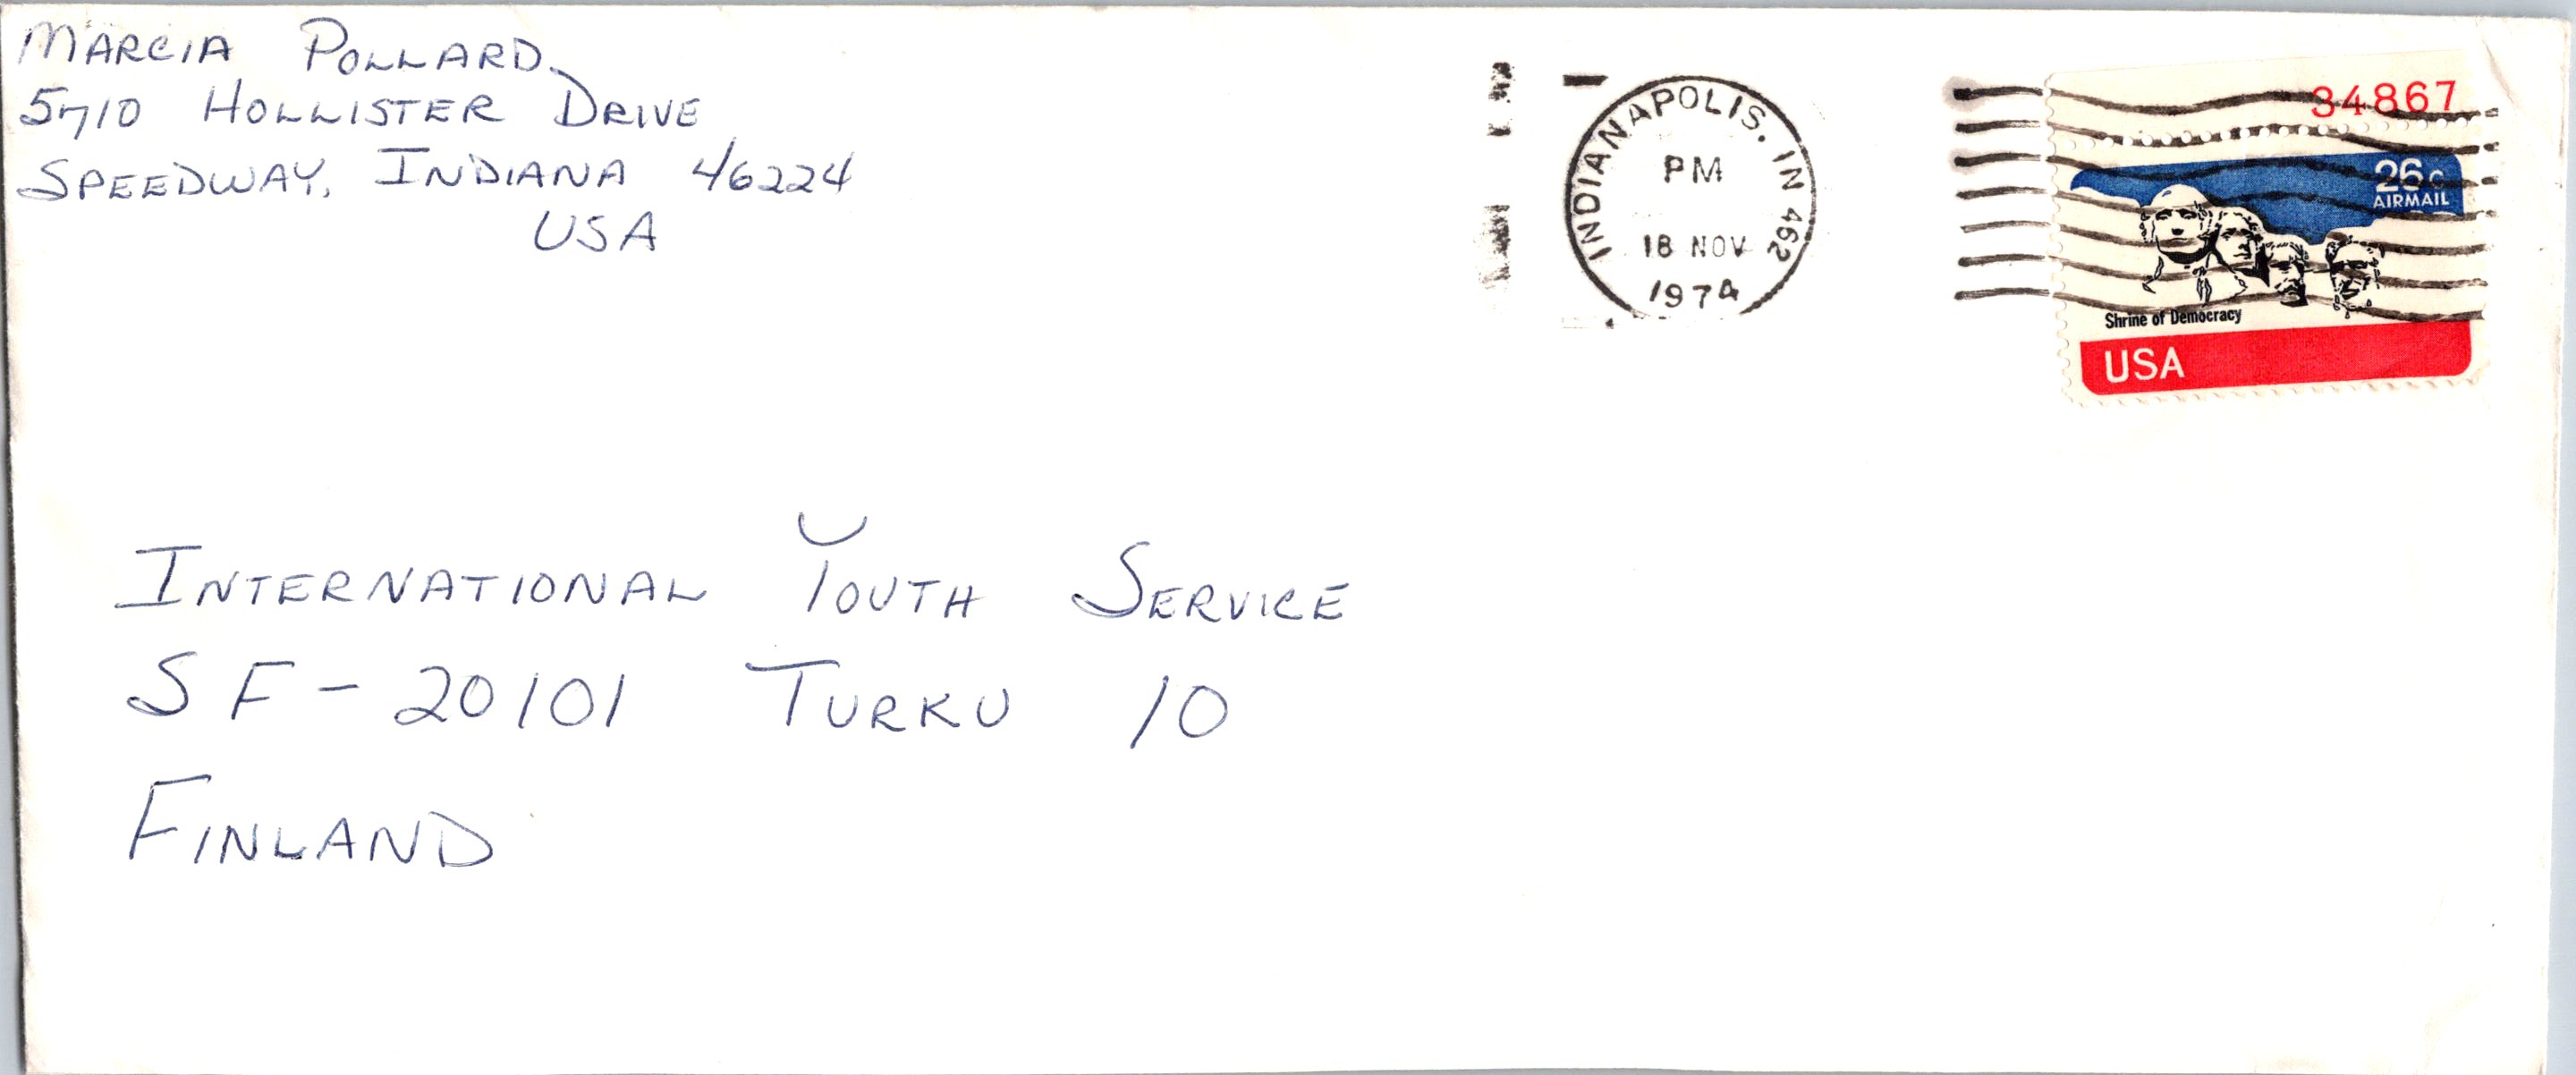 MARCIA POLLARD
5710 HOLLISTER DRIVE
SPEEDWAY, INDIANA 46224
USA
INDIANAPOLIS, IN 462
PM
18 NOV
1974
34867
26c
AIRMAIL
Shrine of Democracy
USA
INTERNATIONAL YOUTH SERVICE
SF-20101 TURKU 10
FINLAND